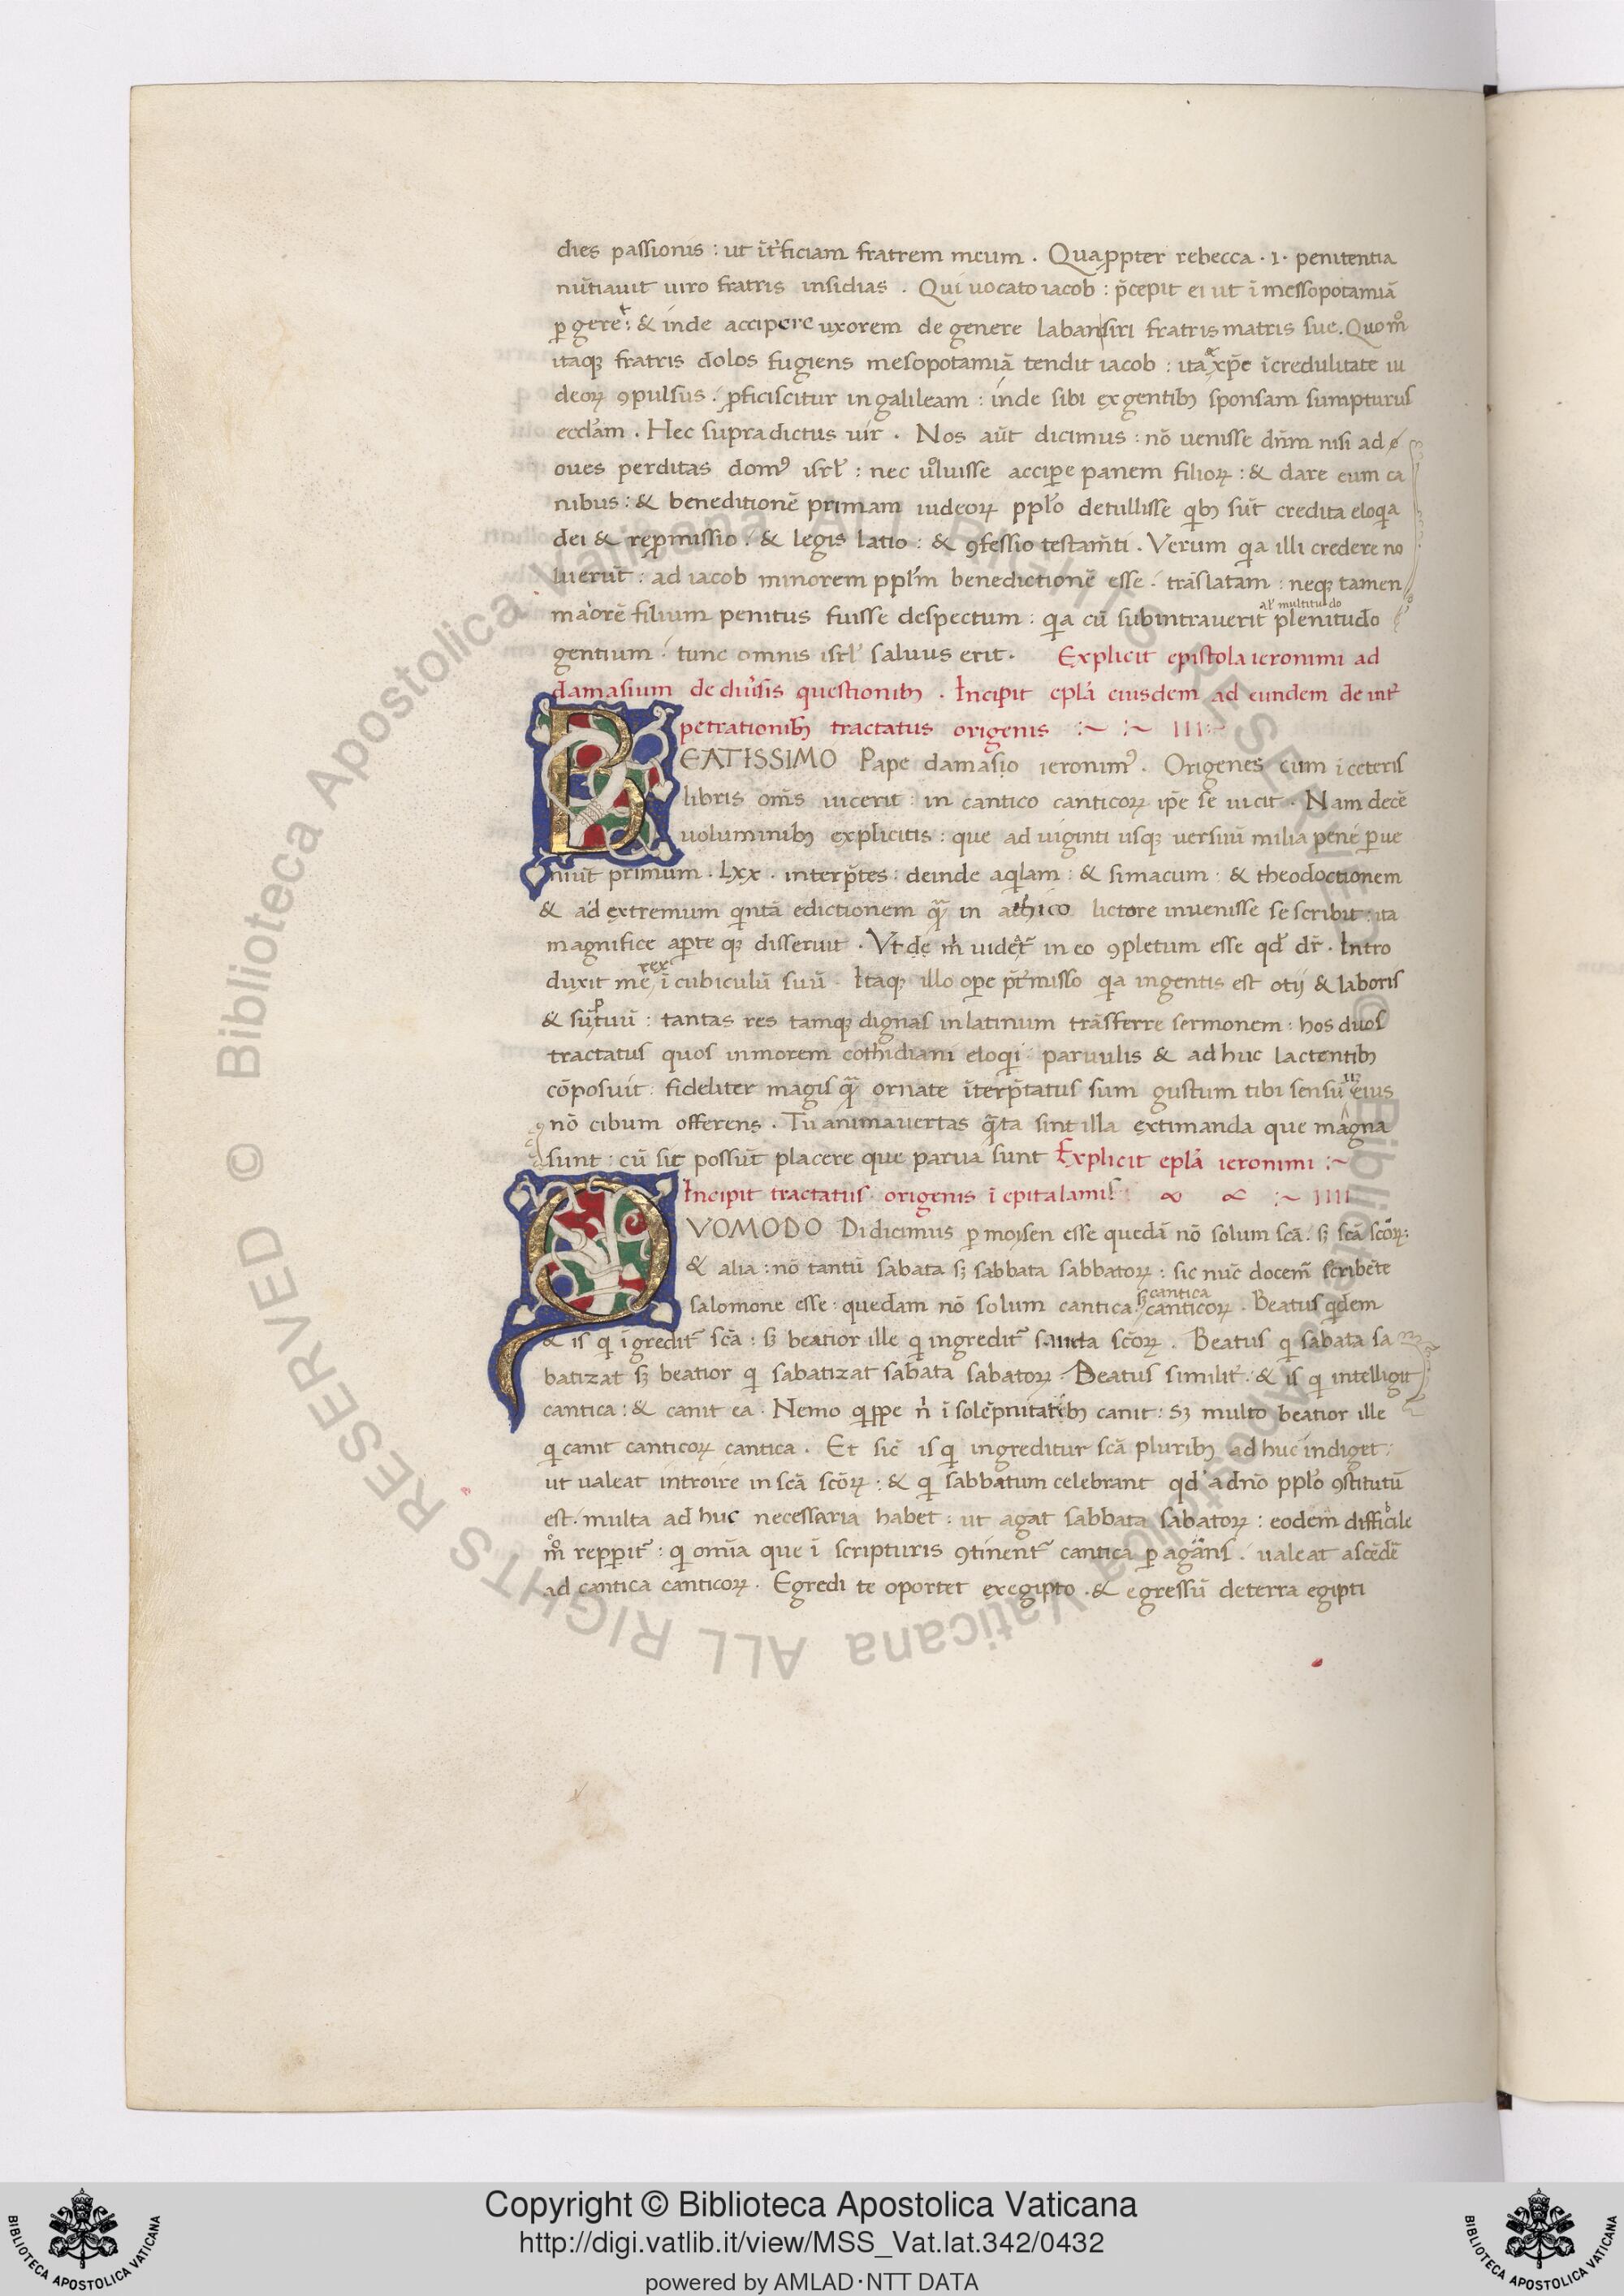 dies passionis : ut īt̉ficiam fratrem meum . Quaꝓpter rebecca . i . penitentia
nūtiauit uiro fratris insidias . Qui uocato iacob : p̄cepit ei ut ī messopotamiā
ꝑ geret : & inde accipere uxorem de genere laban siri fratris matris sue . Quom̊
itaqꝫ fratris dolos fugiens mesopotamiā tendit iacob : ita & xp̄c īcredulitate iu
deoꝝ ꝯpulsus . ꝓficiscitur in galileam : inde sibi ex gentibꝫ sponsam sumpturus
eccl̉am . Hec supradictus uir . Nos aūt dicimus : nō uenisse dn̄m nisi ad
oues perditas domꝰ isrl̉ : nec uoluisse acciꝑe panem filioꝝ : & dare eum ca
nibus : & beneditionē primam iudeoꝝ ppl̉o detullisse qibꝫ sūt credita eloqia
dei & reꝓmissio : & legis latio : & ꝯfessio testam̄ti . Verum qia illi credere no
luerūt : ad iacob minorem ppl̉m benedictionē esse . trāslatam : neqꝫ tamen
maiorē filium penitus fuisse despectum : qia cū subintrauerit plenitudo
al̉ multitudo
gentium . tunc omnis isrl̉ saluus erit . Explicit epistola ieronimi ad
damasium de diủsis questionibꝫ . Incipit epl̉a eiusdem ad eundem de int̉
petrationibꝫ tractatus origenis :~ :~ IIII:~
BEATISSIMO Pape damasio ieronimꝰ . Origenes cum ī ceteris
libris om̄s uicerit : in cantico canticoꝝ ip̄e se uicit . Nam decē
uoluminibꝫ explicitis : que ad uiginti usqꝫ uersuū milia pene ꝑue
niūt primum . lxx . interp̄tes : deinde aqilam : & simacum : & theodoctionem
& ad extremum qintā edictionem qᷓ in athico lictore inuenisse se scribit : ita
magnifice aꝑte qꝫ disseruit . Vt de m̉ uidet̉ in eo ꝯpletum esse qd̉ dr̄ . Intro
duxit me rex ī cubiculū suū . Itaqꝫ illo oꝑe p̄t̉misso qia ingentis est otij & laboris
& sūptuū : tantas res tamqꝫ dignas in latinum trāsferre sermonem : hos duos
tractatus quos in morem cothidiani eloqi paruulis & ad huc lactentibꝫ
cōposuit : fideliter magis qᷓ ornate īterp̄tatus sum gustum tibi sensuū eius
nō cibum offerens . Tu animauertas qᷓta sint illa extimanda que magna
sunt : cū sic possūt placere que parua sunt Explicit epl̉a ieronimi :~
Incipit tractatus origenis ī epitalamis : ∞ ∝ :~ IIII
QVOMODO Didicimus ꝑ moisen esse quedā nō solum scā . sꝫ scā scōꝝ :
& alia : nō tantū sabata sꝫ sabbata sabbatoꝝ : sic nūc docem̄ scribēte
salomone esse : quedam nō solum cantica . sꝫ cantica canticoꝝ . Beatus qidem
& is qi īgredit̉ scā : sꝫ beatior ille qi ingredit̉ sancta scōꝝ . Beatus qi sabata sa
batizat sꝫ beatior qi sabatizat sabata sabatoꝝ . Beatus similit̉ : & is qi intelligit
cantica : & canit ea . Nemo qippe n̉ ī solēpnitatibꝫ canit : Sꝫ multo beatior ille
qi canit canticoꝝ cantica . Et sic̄ is qi ingreditur scā pluribꝫ ad huc indiget :
ut ualeat introire in scā scōꝝ : & qi sabbatum celebrant qd̉ a dn̄o ppl̉o ꝯstitutū
est . multa ad huc necessaria habet : ut agat sabbata sabatoꝝ : eodem difficile
m̊ repꝑit̉ : qi om̄ia que ī scripturis ꝯtinent̉ cantica ꝑ agrāns . ualeat ascēdē
ad cantica canticoꝝ . Egredi te oportet ex egipto . & egressū de terra egipti
Copyright © Biblioteca Apostolica Vaticana
http://digi.vatlib.it/view/MSS_Vat.lat.342/0432
powered by AMLAD·NTT DATA
BIBLIOTECA APOSTOLICA VATICANA
BIBLIOTECA APOSTOLICA VATICANA
© Biblioteca Apostolica Vaticana ALL RIGHTS RESERVED © Biblioteca Apostolica Vaticana ALL RIGHTS RESERVED